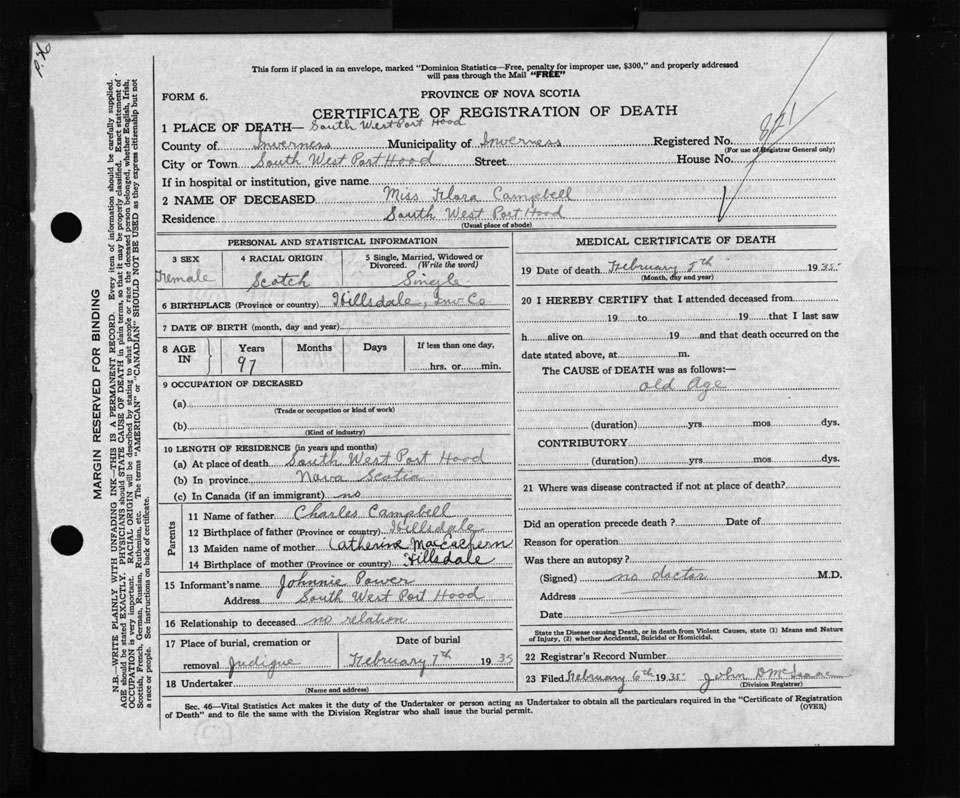 P. H
This form if placed in an envelope, marked "Dominion Statistics—Free, penalty for improper use, $300," and properly addressed
will pass through the Mail "FREE"
FORM 6.
PROVINCE OF NOVA SCOTIA
CERTIFICATE OF REGISTRATION OF DEATH
821
1 PLACE OF DEATH— South West Port Hood
County of Inverness Municipality of Inverness Registered No.
(For use of Registrar General only)
City or Town South West Port Hood Street House No.
If in hospital or institution, give name
2 NAME OF DECEASED Miss Flora Campbell
Residence South West Port Hood
(Usual place of abode)
PERSONAL AND STATISTICAL INFORMATION
3 SEX 4 RACIAL ORIGIN 5 Single, Married, Widowed or
Divorced. (Write the word)
Female Scotch Single
6 BIRTHPLACE (Province or country) Hillsdale, Inv Co
7 DATE OF BIRTH (month, day and year)
8 AGE IN Years Months Days If less than one day,
97 hrs. or min.
9 OCCUPATION OF DECEASED
(a)
(Trade or occupation or kind of work)
(b)
(Kind of industry)
10 LENGTH OF RESIDENCE (in years and months)
(a) At place of death South West Port Hood
(b) In province Nova Scotia
(c) In Canada (if an immigrant) no
Parents
11 Name of father Charles Campbell
12 Birthplace of father (Province or country) Hillsdale
13 Maiden name of mother Catherine MacEalpern
14 Birthplace of mother (Province or country) Hillsdale
15 Informant's name Johnnie Power
Address South West Port Hood
16 Relationship to deceased no relation
17 Place of burial, cremation or Date of burial
removal Judique February 7th 1935
18 Undertaker
(Name and address)
MEDICAL CERTIFICATE OF DEATH
19 Date of death February 5th 1935
(Month, day and year)
20 I HEREBY CERTIFY that I attended deceased from
19 to 19 that I last saw
h alive on 19 and that death occurred on the
date stated above, at m.
The CAUSE of DEATH was as follows:—
old Age
(duration) yrs mos dys.
CONTRIBUTORY
(duration) yrs. mos. dys.
21 Where was disease contracted if not at place of death?
Did an operation precede death ? Date of
Reason for operation
Was there an autopsy?
(Signed) no doctor M.D.
Address
Date
State the Disease causing Death, or in death from Violent Causes, state (1) Means and Nature
of Injury, (2) whether Accidental, Suicidal or Homicidal.
22 Registrar's Record Number
23 Filed February 6th 1935 John D McIsaac
(Division Registrar)
Sec. 46—Vital Statistics Act makes it the duty of the Undertaker or person acting as Undertaker to obtain all the particulars required in the "Certificate of Registration
of Death" and to file the same with the Division Registrar who shall issue the burial permit.
(OVER)
MARGIN RESERVED FOR BINDING
N.B.—WRITE PLAINLY WITH UNFADING INK—THIS IS A PERMANENT RECORD. Every item of information should be carefully supplied.
AGE should be stated EXACTLY. PHYSICIANS should STATE CAUSE OF DEATH in plain terms, so that it may be properly classified. Exact statement of
OCCUPATION is very important. RACIAL ORIGIN will be described by stating to what people or race the deceased person belonged, whether English, Irish,
Scottish, French, German, Russian, Ruthenian, etc. The terms "AMERICAN" or "CANADIAN" SHOULD NOT BE USED as they express citizenship but not
a race or people. See instructions on back of certificate.